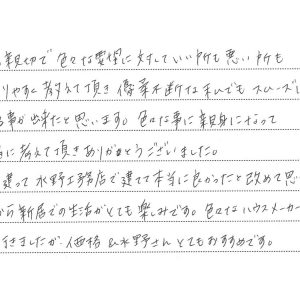 親切で色々な要望に対していい所も悪い所も
りやすく教えて頂き優柔不断な私でもスムーズに
事が出来たと思います。色々な事に親身になって
に教えて頂きありがとうございました。
建って水野工務店で建てて本当に良かったと改めて思い
から新居での生活がとても楽しみです。色々なハウスメーカー
行きましたが、価格も水野さんとてもおすすめです。